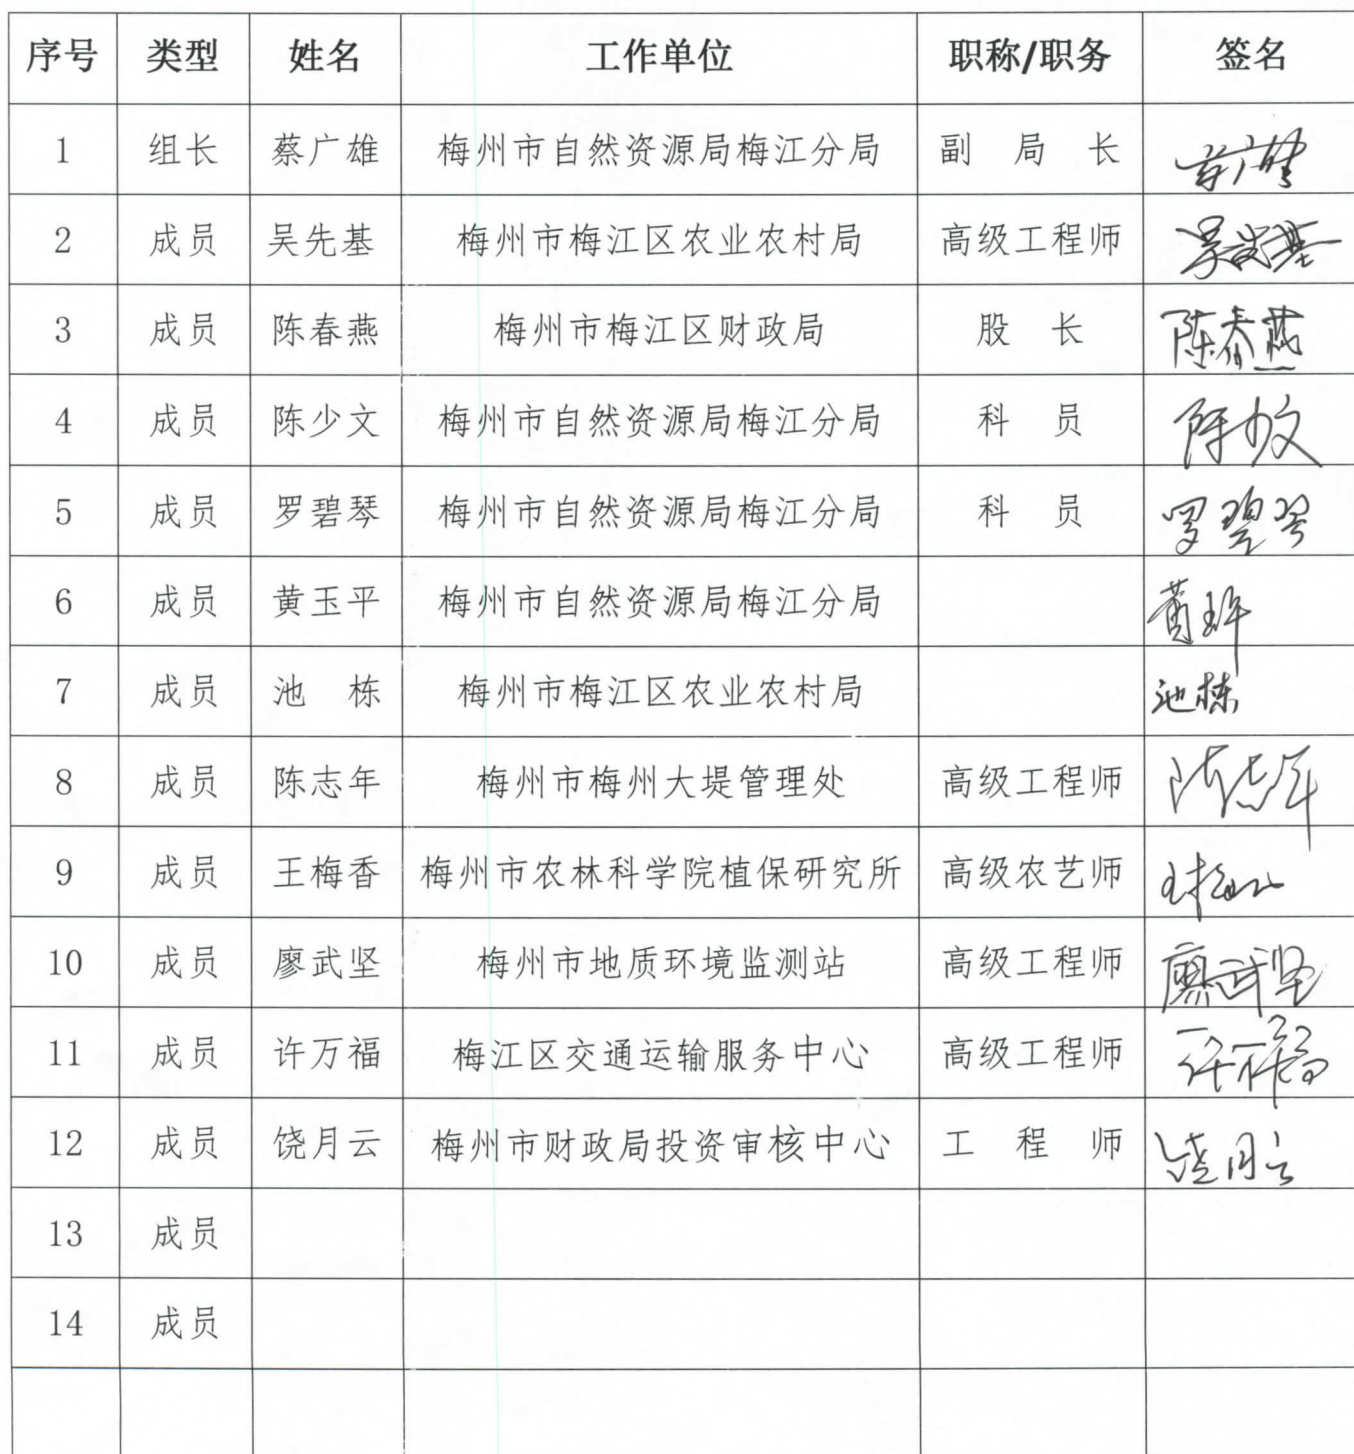 序号 类型 姓名 工作单位 职称/职务 签名
1 组长 蔡广雄 梅州市自然资源局梅江分局 副 局 长 蔡广雄
2 成员 吴先基 梅州市梅江区农业农村局 高级工程师 吴先基
3 成员 陈春燕 梅州市梅江区财政局 股 长 陈春燕
4 成员 陈少文 梅州市自然资源局梅江分局 科 员 陈少文
5 成员 罗碧琴 梅州市自然资源局梅江分局 科 员 罗碧琴
6 成员 黄玉平 梅州市自然资源局梅江分局 黄玉平
7 成员 池 栋 梅州市梅江区农业农村局 池栋
8 成员 陈志年 梅州市梅州大堤管理处 高级工程师 陈志年
9 成员 王梅香 梅州市农林科学院植保研究所 高级农艺师 王梅香
10 成员 廖武坚 梅州市地质环境监测站 高级工程师 廖武坚
11 成员 许万福 梅江区交通运输服务中心 高级工程师 许万福
12 成员 饶月云 梅州市财政局投资审核中心 工 程 师 饶月云
13 成员
14 成员